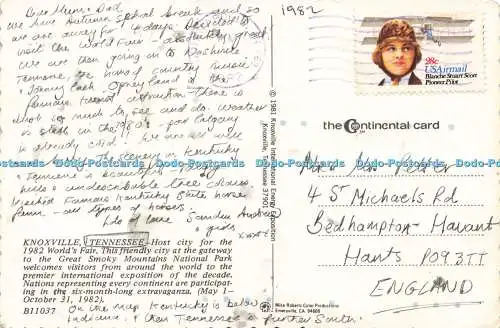 Dear Mum & Dad,
We have Autumn school break and so
we are away for 4 days. Decided to
visit the World Fair - absolutely great
We are then going on to Nashville
Tennessee, the home of country music
Johnny Cash. Opreyland is the
famous tourist attraction. There is
so much to see and do. Weather
is still in the 80's. Calgary
is already cold. We are all well
The scenery in Kentucky
& Tennessee is beautiful - rolling
hills & undescribable tree colours.
Visited Famous Kentucky State horse
farm - all types of horses.
Lots of love Sandra
& girls
XXXX
KNOXVILLE, TENNESSEE-Host city for the
1982 World's Fair. This friendly city at the gateway
to the Great Smoky Mountains National Park
welcomes visitors from around the world to the
premier international exposition of the decade.
Nations representing every continent are participat-
ing in the six-month-long extravaganza. (May 1-
October 31, 1982).
B11037
On the map Kentucky is below
Indiana & then Tennessee is further South.
© 1981 Knoxville International Energy Exposition
Knoxville, Tennessee 37901
Mike Roberts Color Productions
Emeryville, CA 94608
1982
28c
USAirmail
Blanche Stuart Scott
Pioneer Pilot
the Continental card
4 St Michaels Rd
Bedhampton - Havant
Hants PO9 3TT
ENGLAND
Dodo-Postcards Dodo-Postcards Dodo-Postcards Dodo-Postcards Dodo-Postcards